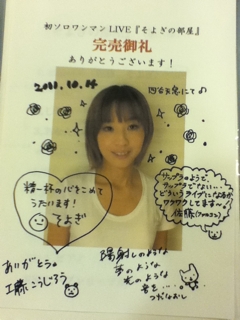 初ソロワンマンLIVE『そよぎの部屋』
完売御礼
ありがとうございます!
2011.10.04
四谷天窓にて♪
精一杯の心をこめて
うたいます!
そよぎ
サップラのようで、
サップラでない…
どういうライブになるか
ワクワクしてます〜!
佐藤
ありがとう。
工藤こうじろう
陽射しのような
夢のような
光のような
音を…